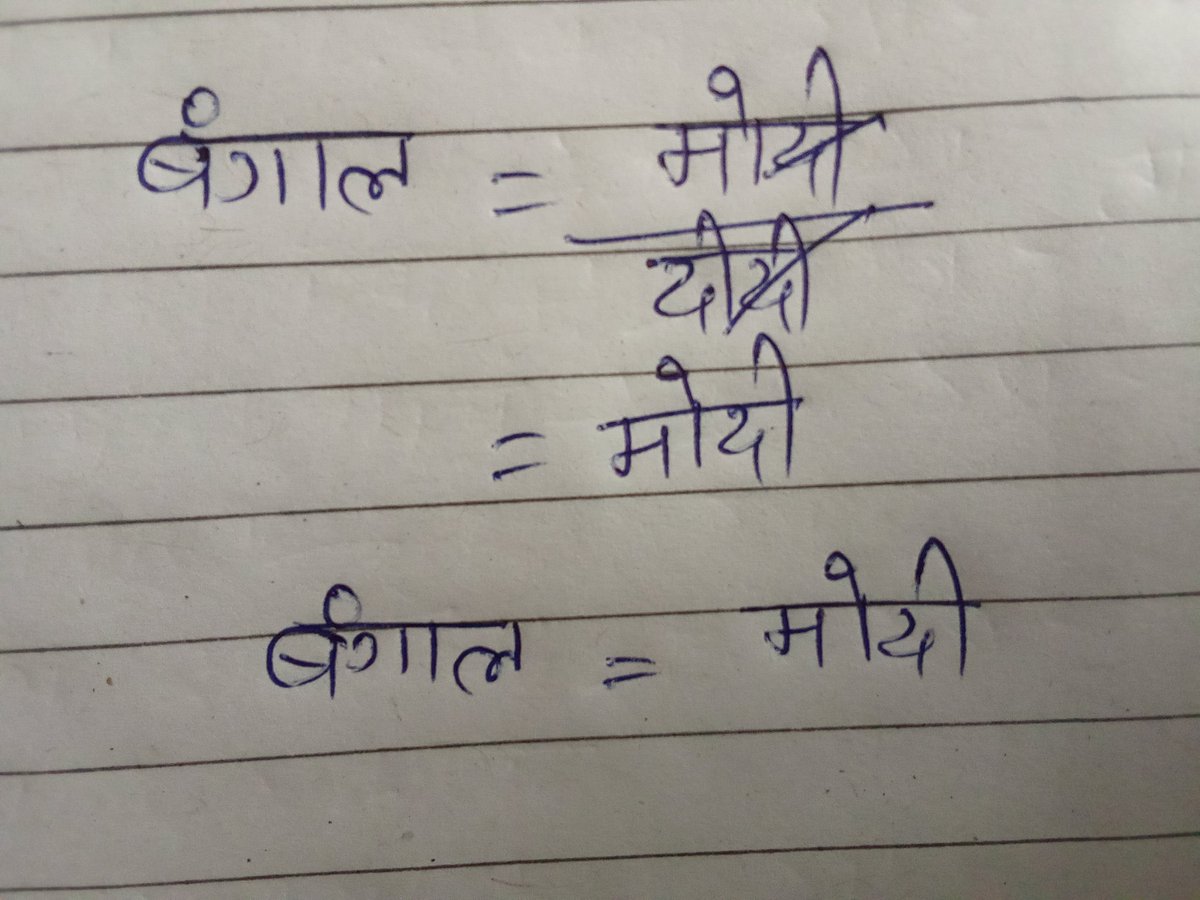 बंगाल = मोदी
दीदी
= मोदी
बंगाल = मोदी